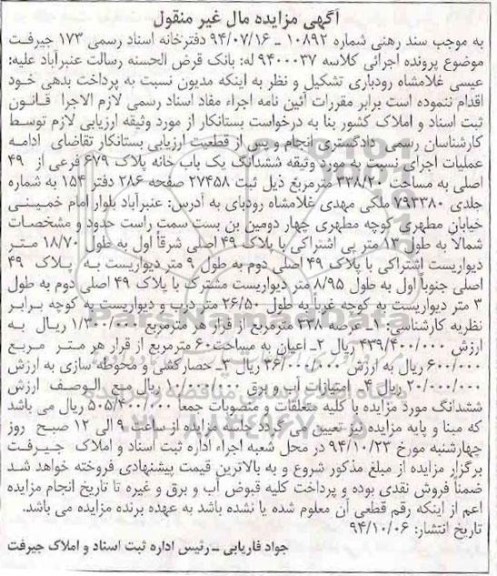 آگهی مزایده مال غیر منقول
به موجب سند رهنی شماره ۱۰۸۹۲ – ۹۴/۰۷/۱۶ دفترخانه اسناد رسمی ۱۷۳ جیرفت
موضوع پرونده اجرائی کلاسه ۹۴۰۰۰۳۷ له: بانک قرض الحسنه رسالت عنبرآباد علیه:
عیسی غلامشاه رودباری تشکیل و نظر به اینکه مدیون نسبت به پرداخت بدهی خود
اقدام ننموده است برابر مقررات آئین نامه اجراء مفاد اسناد رسمی لازم الاجرا قانون
ثبت اسناد و املاک کشور بنا به درخواست بستانکار از مورد وثیقه ارزیابی لازم توسط
کارشناسان رسمی دادگستری انجام و پس از قطعیت ارزیابی بستانکار تقاضای ادامه
عملیات اجرای نسبت به مورد وثیقه ششدانگ یک باب خانه پلاک ۶۷۹ فرعی از ۴۹
اصلی به مساحت ۳۳۸/۲۰ مترمربع ذیل ثبت ۲۷۴۵۸ صفحه ۲۸۶ دفتر ۱۵۴ به شماره
جلدی ۷۹۳۳۸۰ ملکی مهدی غلامشاه رودبای به آدرس: عنبرآباد بلوار امام خمینی
خیابان مطهری کوچه مطهری چهار دومین بن بست سمت راست حدود و مشخصات
شمالا به طول ۱۳ متر پی اشتراکی با پلاک ۴۹ اصلی شرقاً اول به طول ۱۸/۷۰ متر
دیواریست اشتراکی با پلاک ۴۹ اصلی دوم به طول ۹ متر دیواریست به پلاک ۴۹
اصلی جنوباً اول به طول ۸/۹۵ متر دیواریست مشترک با پلاک ۴۹ اصلی دوم به طول
۳ متر دیواریست به کوچه غرباً به طول ۲۶/۵۰ متر درب و دیواریست به کوچه برابر
نظریه کارشناسی: ۱ـ عرصه ۳۳۸ مترمربع از قرار هر مترمربع ۱/۳۰۰/۰۰۰ ریال به
ارزش ۴۳۹/۴۰۰/۰۰۰ ریال ۲ـ اعیان به مساحت ۶۰ مترمربع از قرار هر متر مربع
۶۰۰/۰۰۰ ریال به ارزش ۳۶/۰۰۰/۰۰۰ ریال ۳ـ حصارکشی و محوطه سازی به ارزش
۲۰/۰۰۰/۰۰۰ ریال ۴ـ امتیازات آب و برق ۱۰/۰۰۰/۰۰۰ ریال مع الوصف ارزش
ششدانگ مورد مزایده با کلیه متعلقات و منصوبات جمعا ۵۰۵/۴۰۰/۰۰۰ ریال می باشد
که مبنا و پایه مزایده نیز تعیین می گردد جلسه مزایده از ساعت ۹ الی ۱۲ صبح روز
چهارشنبه مورخ ۹۴/۱۰/۲۳ در محل شعبه اجراء اداره ثبت اسناد و املاک جیرفت
برگزار مزایده از مبلغ مذکور شروع و به بالاترین قیمت پیشنهادی فروخته خواهد شد
ضمناً فروش نقدی بوده و پرداخت کلیه قبوض آب و برق و غیره تا تاریخ انجام مزایده
اعم از اینکه رقم قطعی آن معلوم شده یا نشده باشد به عهده برنده مزایده می باشد.
تاریخ انتشار: ۹۴/۱۰/۰۶
جواد فاریابی – رئیس اداره ثبت اسناد و املاک جیرفت